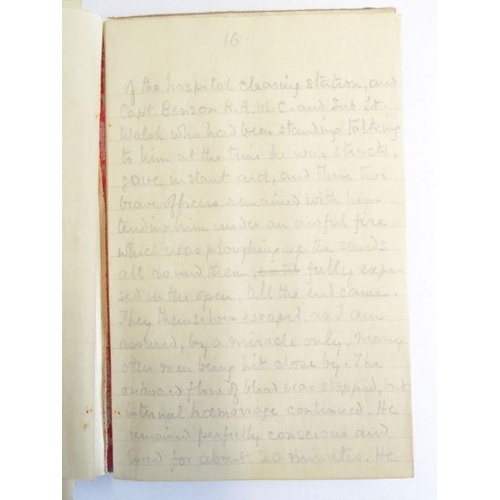 16
of the hospital clearing station, and
Capt. Benson R.A.M.C. and Sub. Lt.
Walsh who had been standing talking
to him at the time he was struck,
gave instant aid, and these two
brave officers remained with him
tending him under an awful fire
which was ploughing up the sands
all round them, fully expo-
sed in the open, till the end came.
They themselves escaped, as I am
assured, by a miracle only, many
other men being hit close by. The
outward flow of blood was stopped, but
internal hæmorrage continued. He
remained perfectly conscious and
lived for about 20 minutes. He